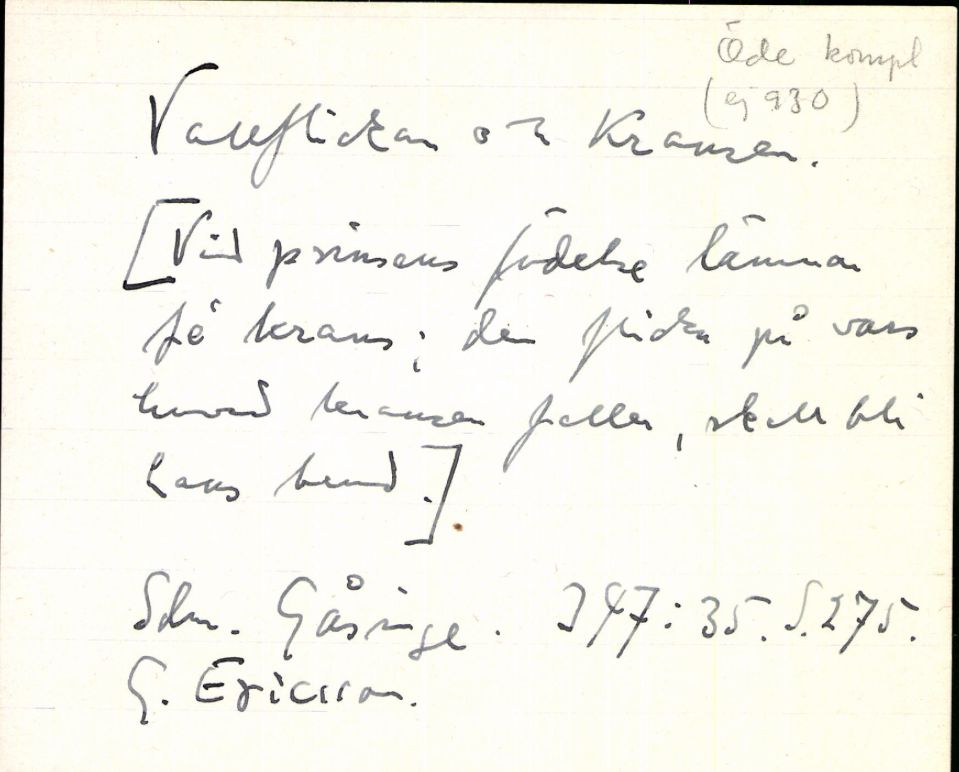 Öde kompl
(ej 930)
Vallflickan och Kransen.
[Vid prinsens födelse lämnar
fé krans; den flicka på vars
huvud kransen faller, skall bli
hans brud.]
Sdm. Gåsinge. 347:35. S.275.
G. Ericsson.